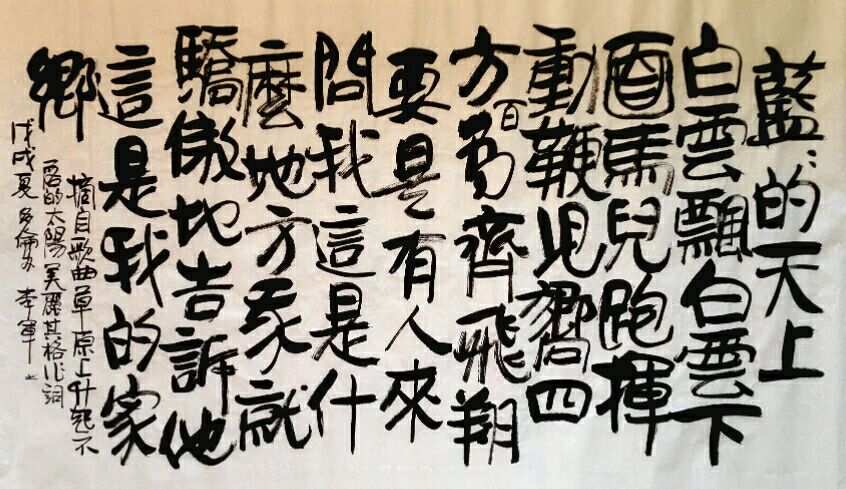 藍〻的天上
白雲飄白雲下
面馬兒跑揮
動鞭兒響四
方百鳥齊飛翔
要是有人來
問我這是什
麼地方我就
驕傲地告訴他
這是我的家
鄉
摘自歌曲草原上升起不
落的太陽 美麗其格作詞
戊戌夏 多倫 李軍